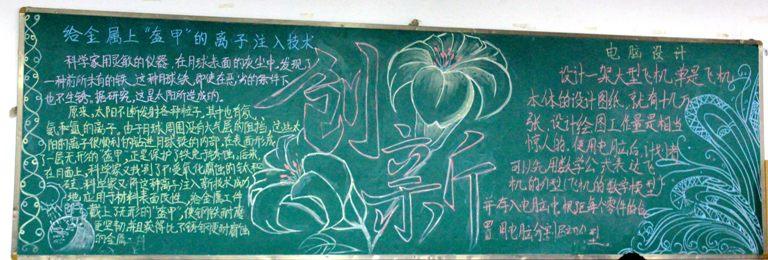 给金属上“盔甲”的离子注入技术
科学家用灵敏的仪器,在月球表面的灰尘中,发现了
一种前所未有的铁,这种月球铁,即使在恶劣的条件下
也不生锈。据研究,这是太阳所造成的。
原来,太阳不断放射各种粒子,其中也有氢、
氦和氩的离子。由于月球周围没有大气层的阻挡,这些太
阳的离子很顺利钻进月球铁的内部,在表面形成
了一层无形的“盔甲”,正是保护了铁免于锈蚀,后来,
在月面上,科学家又找到了不受氧化腐蚀的钛和
硅,科学家又所这种离子注入新技术成功
地应用于材料表面改性,给金属工件
戴上“无形的”盔甲”,使钢铁耐磨
更坚韧,并且获得比不锈钢更耐腐蚀
的金属。
创新
电脑设计
设计一架大型飞机,单是飞机
本体的设计图纸,就有十几万
张,设计绘图工作量是相当
惊人的。使用电脑后,设计者
可以先用数学公式表达飞
机的外型(飞机的数学模型)
并存入电脑中,根据每个零件的位
置,用电脑分割
型